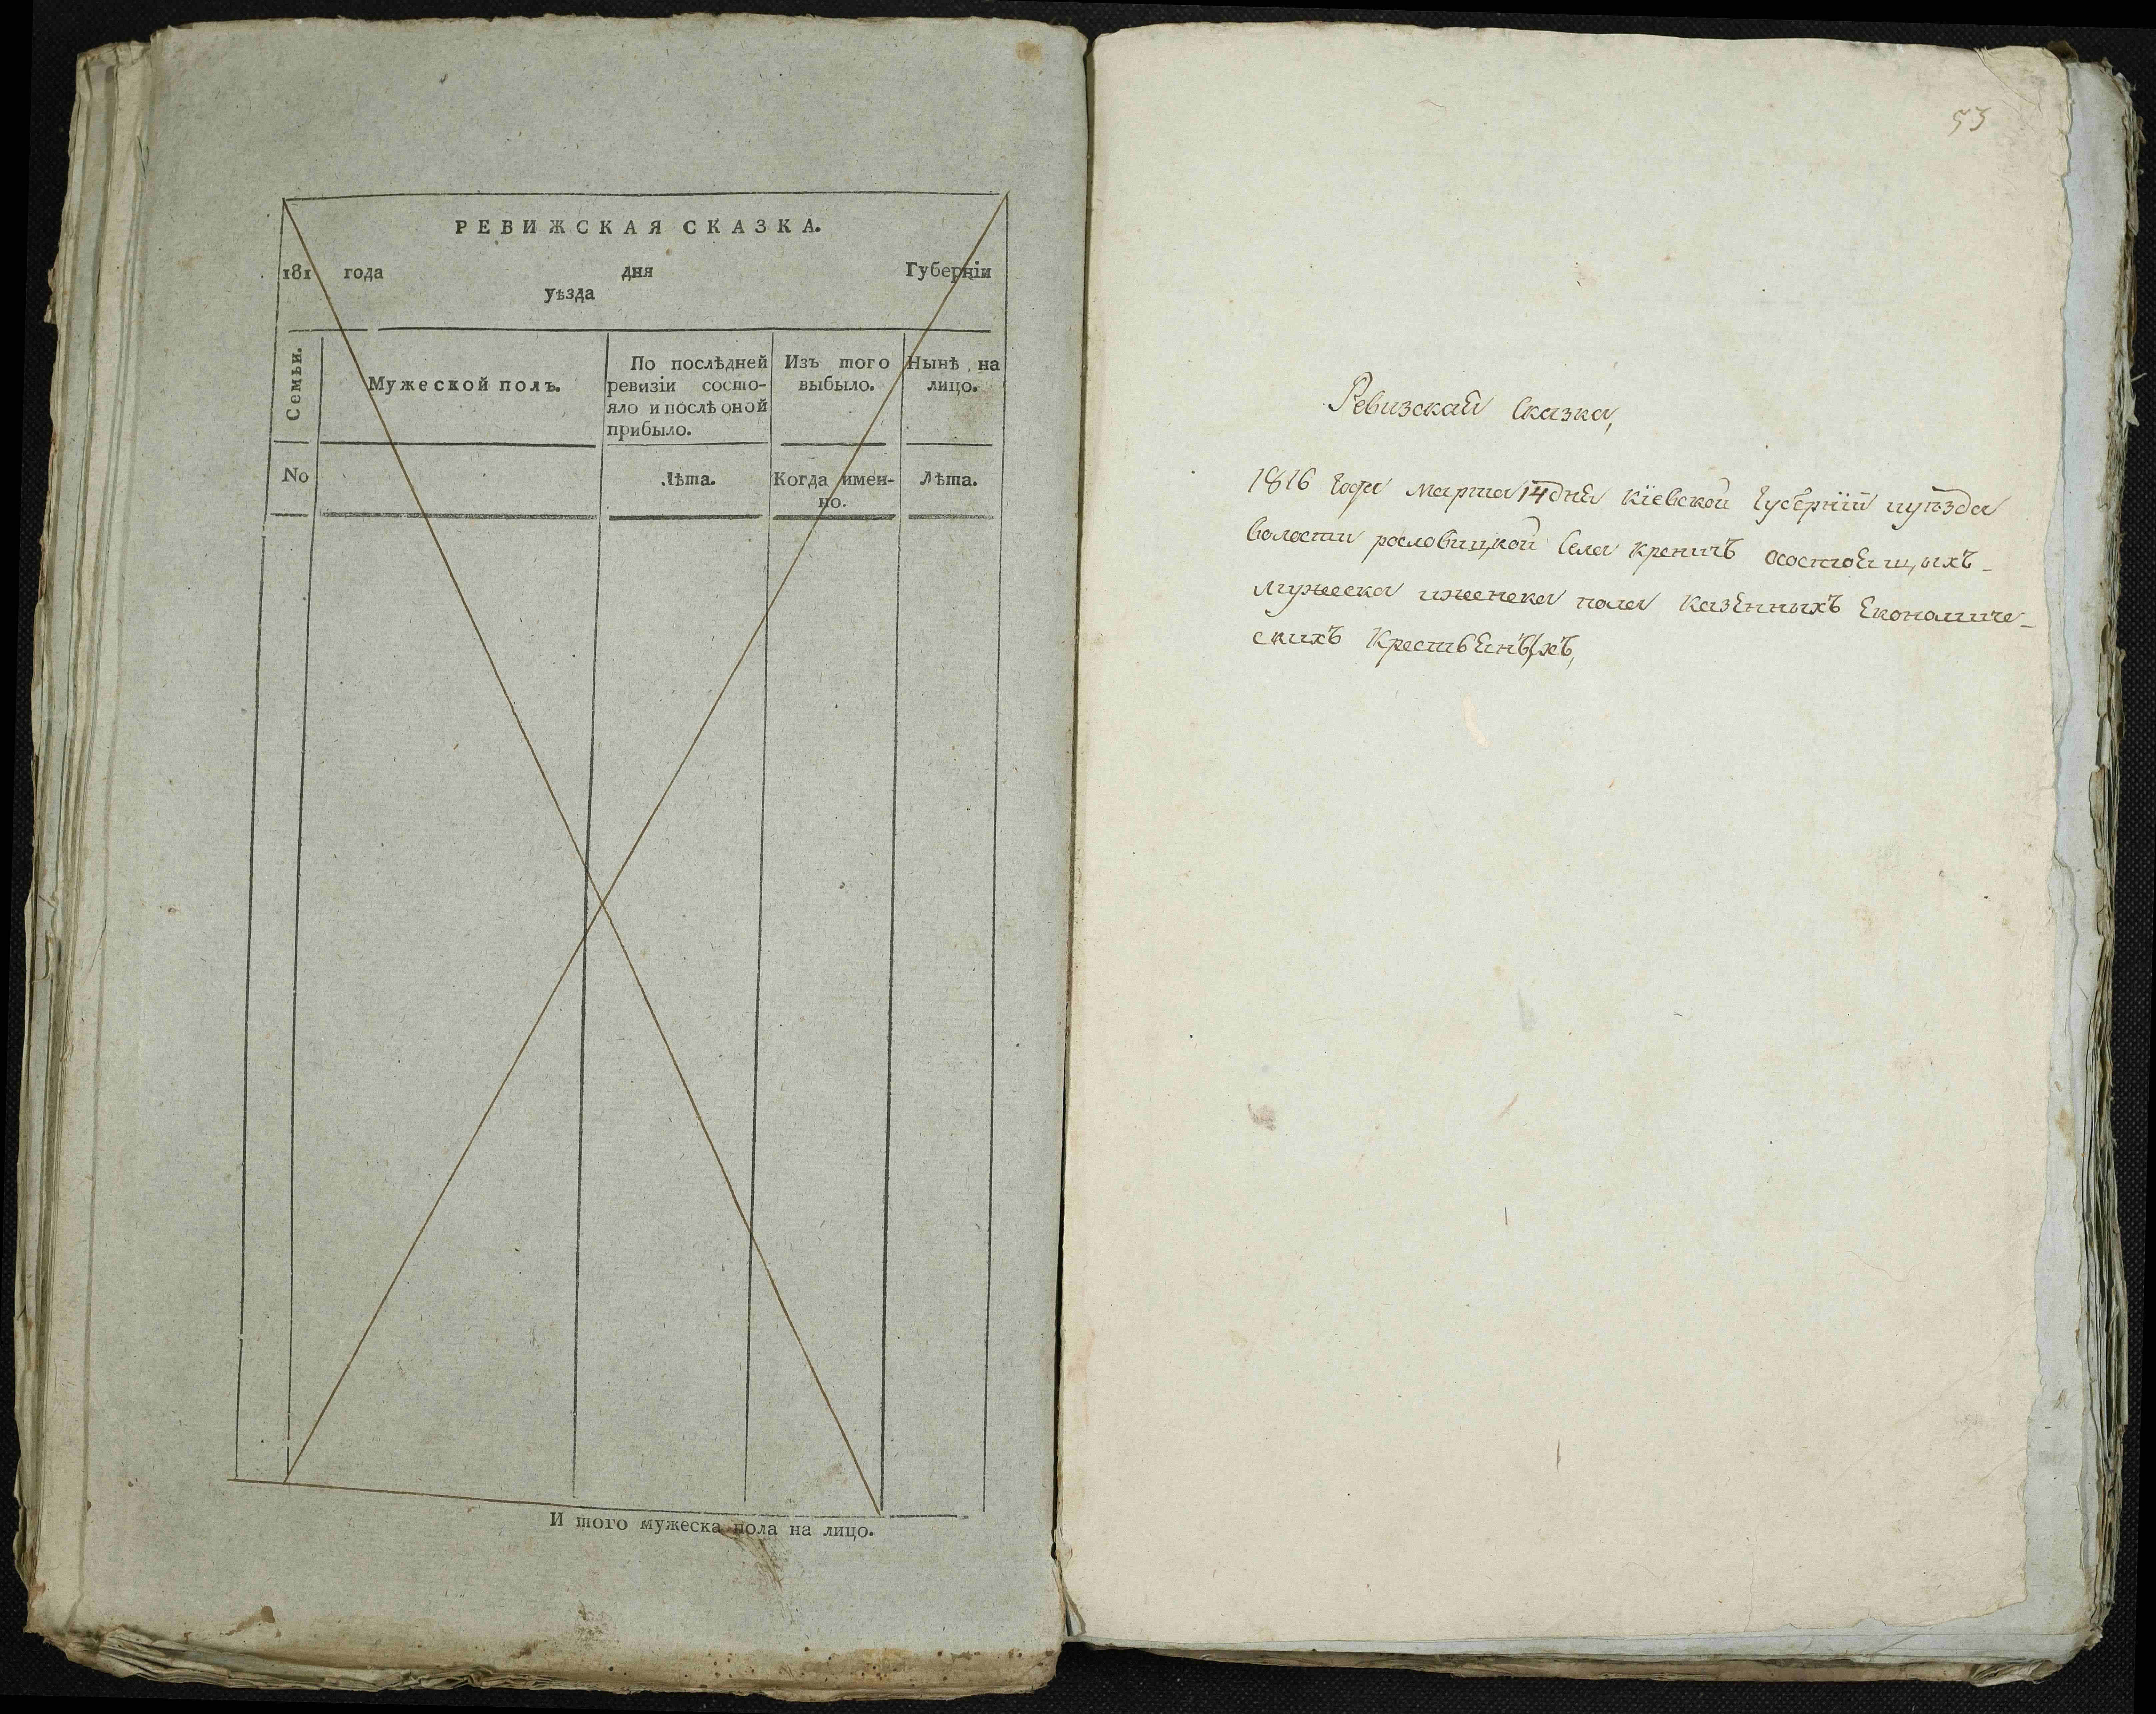 РЕВИЖСКАЯ СКАЗКА.
181 года дня Губерніи
уѣзда
Семьи.
Мужеской полъ.
По послѣдней
ревизіи состо-
яло и послѣ оной
прибыло.
Изъ того
выбыло.
Нынѣ на
лицо.
No
Лѣта.
Когда имен-
но.
Лѣта.
И того мужеска пола на лицо.
53
Ревизская Сказка,
1816 года марта 14 дня Кіевской Губерніи иуѣзда
Волости рославицкой Села Креничъ осостоящихъ
мужеска иженска пола казенныхъ Економиче-
скихъ Крестьянъхъ,